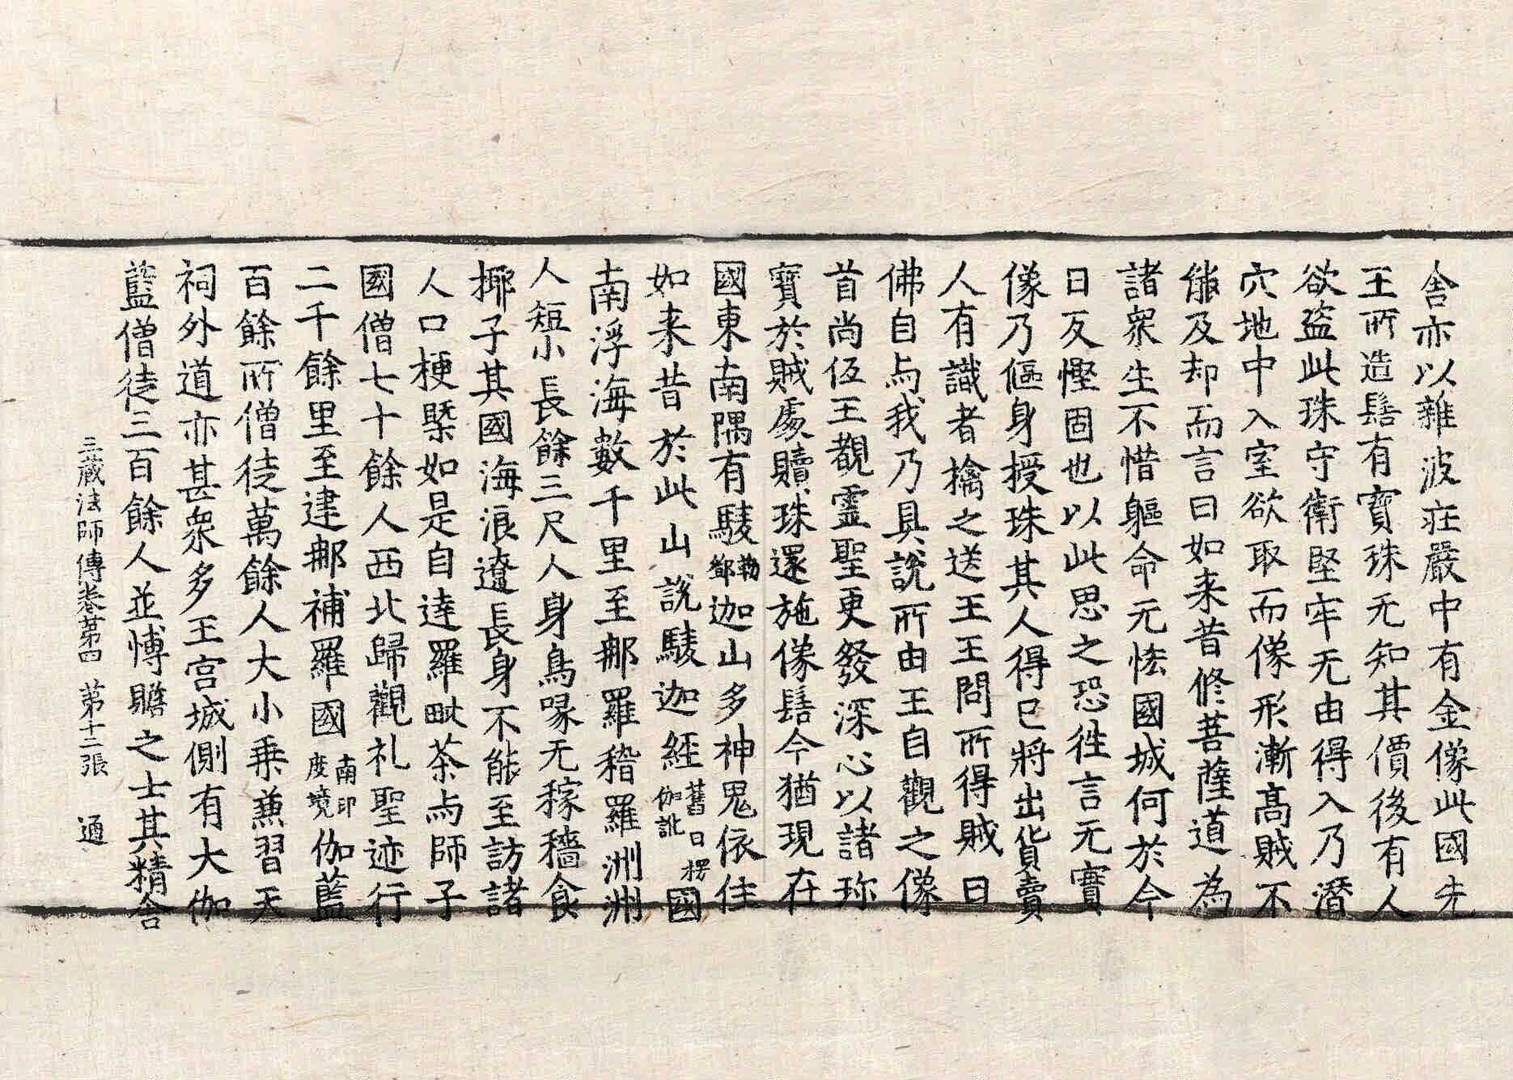 舎亦以雜波荘嚴中有金像此國先
王所造髻有寶珠无知其價後有人
欲盗此珠守衛堅牢无由得入乃潛
穴地中入室欲取而像形漸髙賊不
能及却而言曰如来昔修菩薩道為
諸衆生不惜軀命无恡國城何於今
日反慳固也以此思之恐徃言无實
像乃傴身授珠其人得已將出貨賣
人有識者擒之送王王問所得賊曰
佛自与我乃具說所由王自觀之像
首尚仾王覩霊聖更發深心以諸珎
寶於賊處贖珠還施像髻今猶現在
國東南隅有駿勒鄒迦山多神鬼依住
如来昔於此山說駿迦經舊曰楞伽訛國
南浮海數千里至那羅稽羅洲洲
人短小長餘三尺人身鳥喙无稼穡食
揶子其國海浪遼長身不能至訪諸
人口梗槩如是自達羅毗茶与師子
國僧七十餘人西北歸觀礼聖迹行
二千餘里至建那補羅國南印度境伽藍
百餘所僧徒萬餘人大小乗兼習天
祠外道亦甚衆多王宫城側有大伽
藍僧徒三百餘人並博贍之士其精舎
三藏法師傳卷苐四 第十二張 通